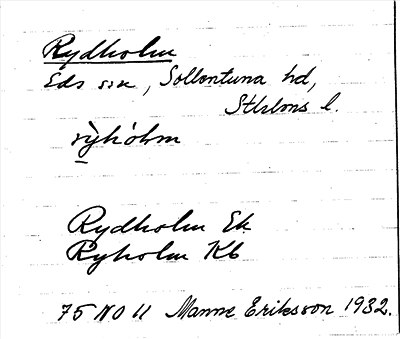 Rydholm
Eds sn, Sollentuna hd,
Sthlms l.
rỳhólm
Rydholm Ek
Ryholm Kb
75 NO 11 Manne Eriksson 1932.